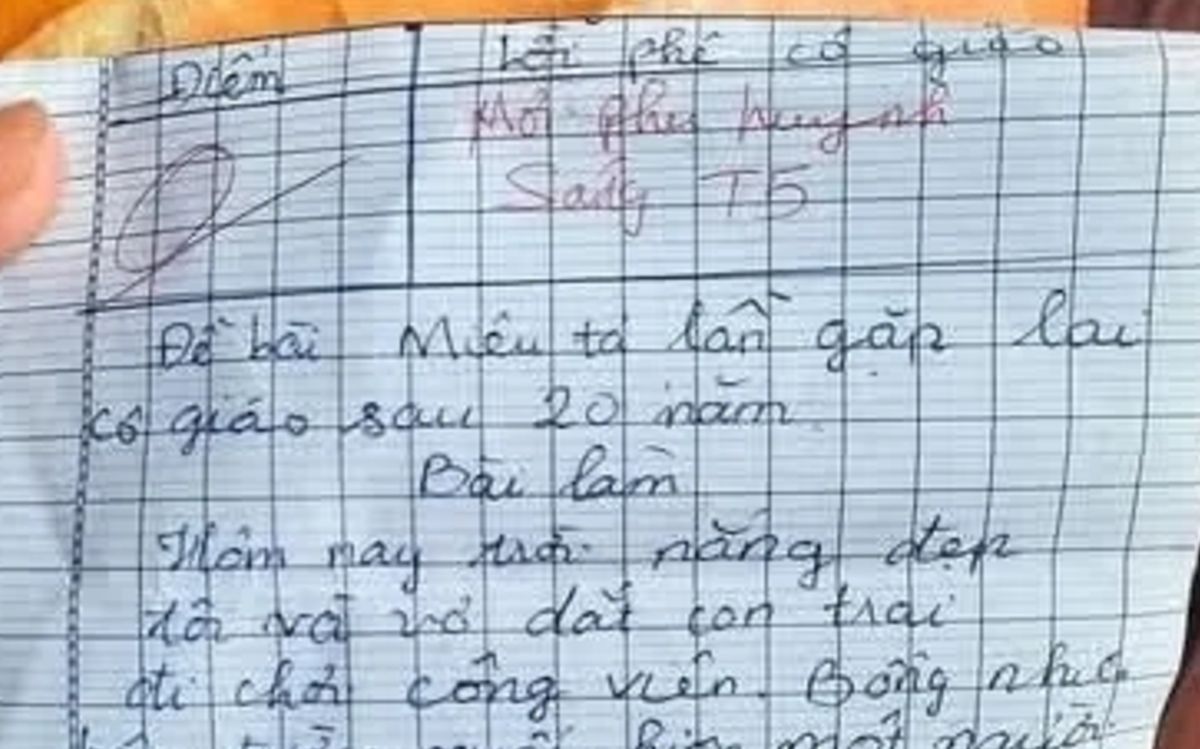 Điểm
Lời phê cô giáo
Mời phụ huynh
Sáng T5
Đề bài Miêu tả lần gặp lại
cô giáo sau 20 năm.
Bài làm
Hôm nay trời nắng đẹp
tôi và vợ dắt con trai
đi chơi công viên. Bỗng nhiê
một người